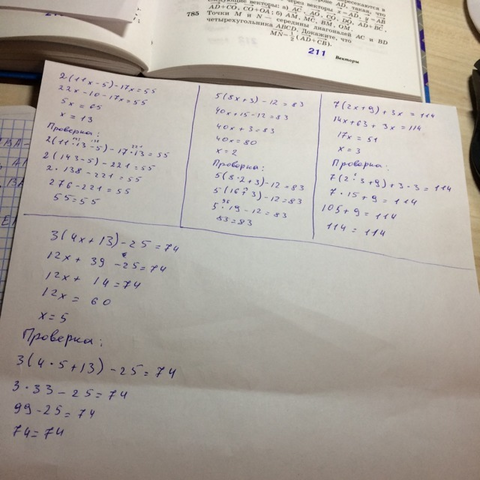 785
Точки M и N — середины диагоналей AC и BD
четырехугольника ABCD. Докажите, что
211
Векторы
2(11x-5)-17x=55
22x-10-17x=55
5x=65
x=13
Проверка:
2(11·13-5)-17·13=55
2(143-5)-221=55
2·138-221=55
276-221=55
55=55
5(8x+3)-12=83
40x+15-12=83
40x+3=83
40x=80
x=2
Проверка:
5(8·2+3)-12=83
5(16+3)-12=83
5·19-12=83
83=83
7(2x+9)+3x=114
14x+63+3x=114
17x=51
x=3
Проверка:
7(2·3+9)+3·3=114
7·15+9=114
105+9=114
114=114
3(4x+13)-25=74
12x+39-25=74
12x+14=74
12x=60
x=5
Проверка:
3(4·5+13)-25=74
3·33-25=74
99-25=74
74=74